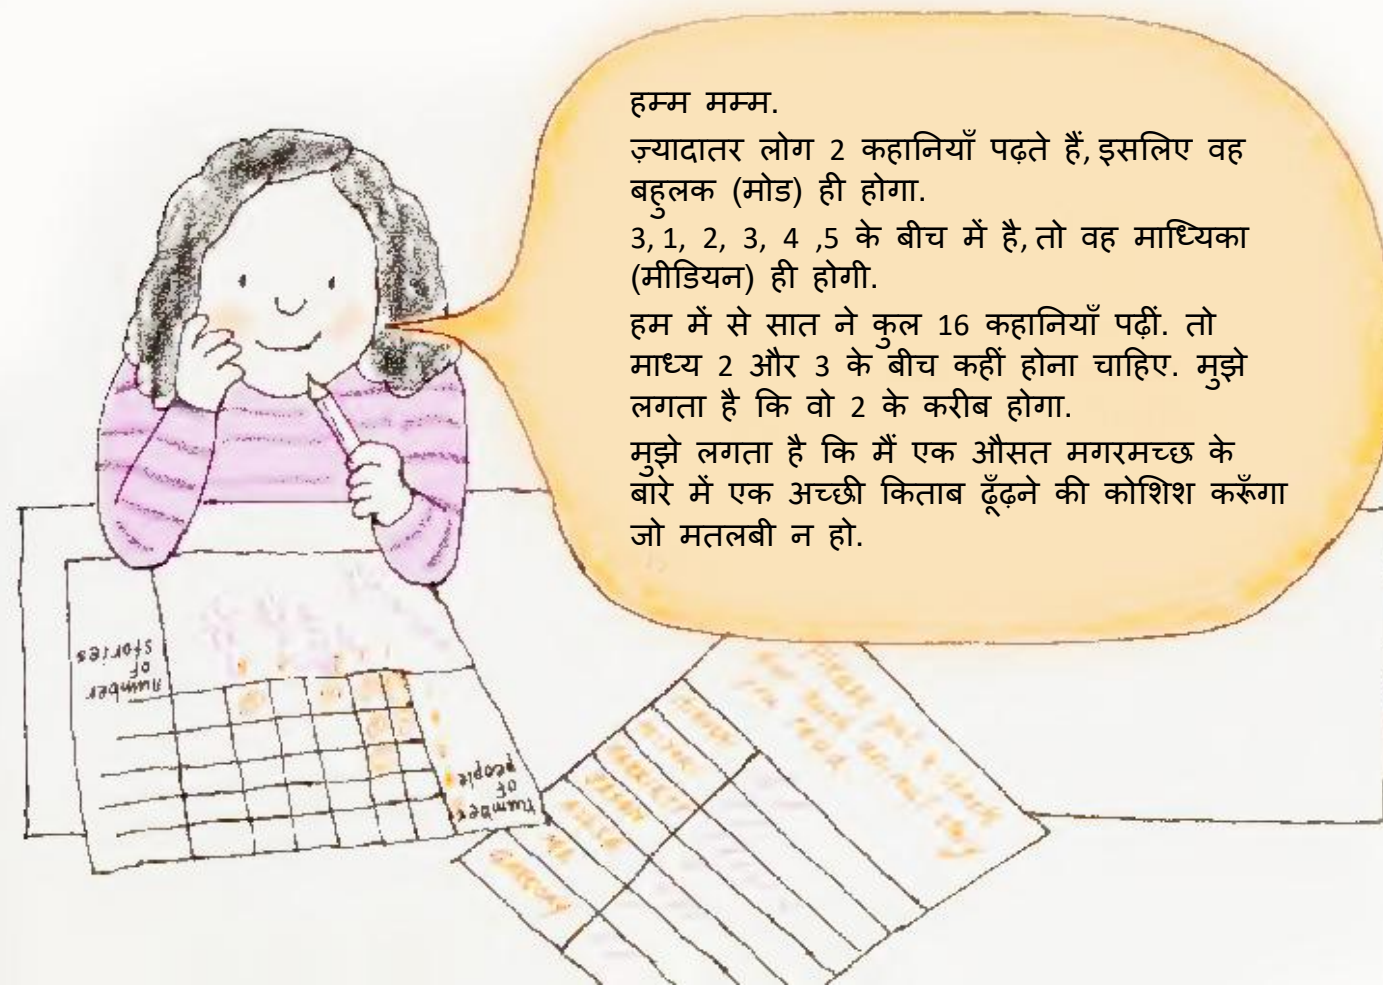 हम्म मम्म.
ज़्यादातर लोग 2 कहानियाँ पढ़ते हैं, इसलिए वह
बहुलक (मोड) ही होगा.
3, 1, 2, 3, 4 ,5 के बीच में है, तो वह माध्यिका
(मीडियन) ही होगी.
हम में से सात ने कुल 16 कहानियाँ पढ़ीं. तो
माध्य 2 और 3 के बीच कहीं होना चाहिए. मुझे
लगता है कि वो 2 के करीब होगा.
मुझे लगता है कि मैं एक औसत मगरमच्छ के
बारे में एक अच्छी किताब ढूँढ़ने की कोशिश करूँगा
जो मतलबी न हो.
number
of
stories
number
of
people
Please put a
you read